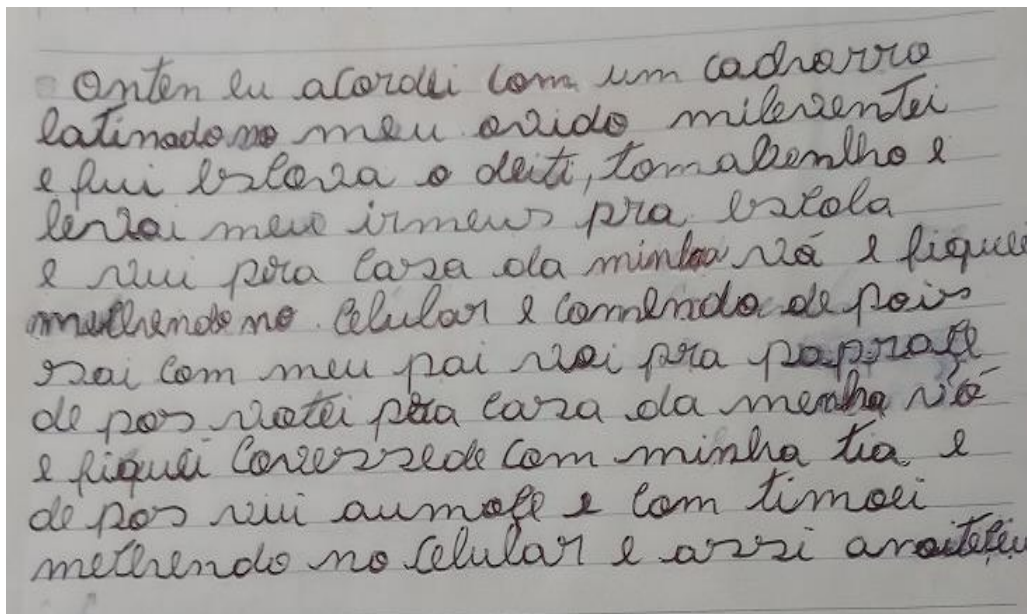 Onten eu acordei com um cachorro
latinado no meu ovido mileventei
e fui escova o deiti, tomabenlho e
levai meus irmeus pra escola
e vui pra casa da minha vó e fiquei
mechendo no celular e comendo de pois
sai com meu pai vai pra
de pos votei pra casa da menha vó
e fiquei converssede com minha tia e
de pos vui aumofe e com timoei
mechendo no celular e assi